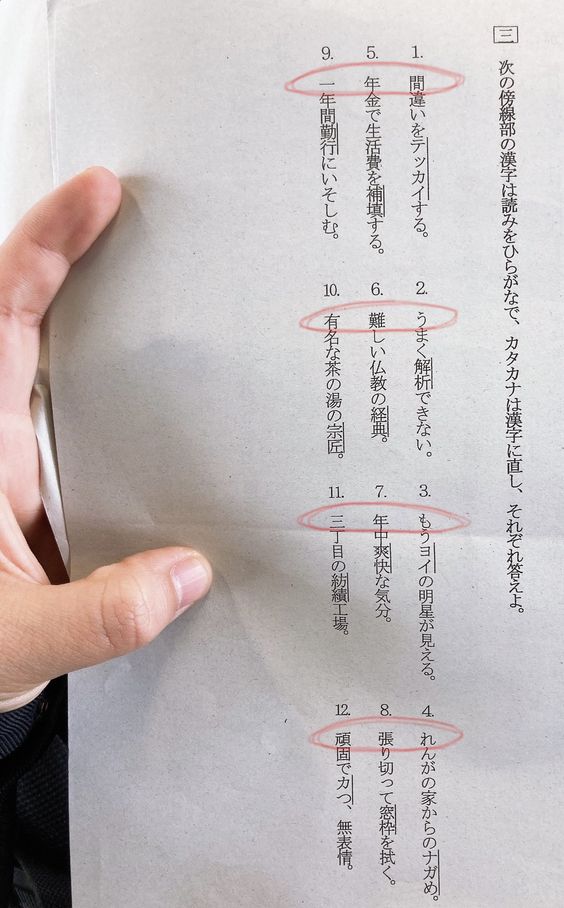 三 次の傍線部の漢字は読みをひらがなで、カタカナは漢字に直し、それぞれ答えよ。
1. 間違いをテッカイする。
2. うまく解析できない。
3. もうヨイの明星が見える。
4. れんがの家からのナガめ。
5. 年金で生活費を補填する。
6. 難しい仏教の経典。
7. 年中爽快な気分。
8. 張り切って窓枠を拭く。
9. 一年間勤行にいそしむ。
10. 有名な茶の湯の宗匠。
11. 三丁目の紡績工場。
12. 頑固でカつ、無表情。